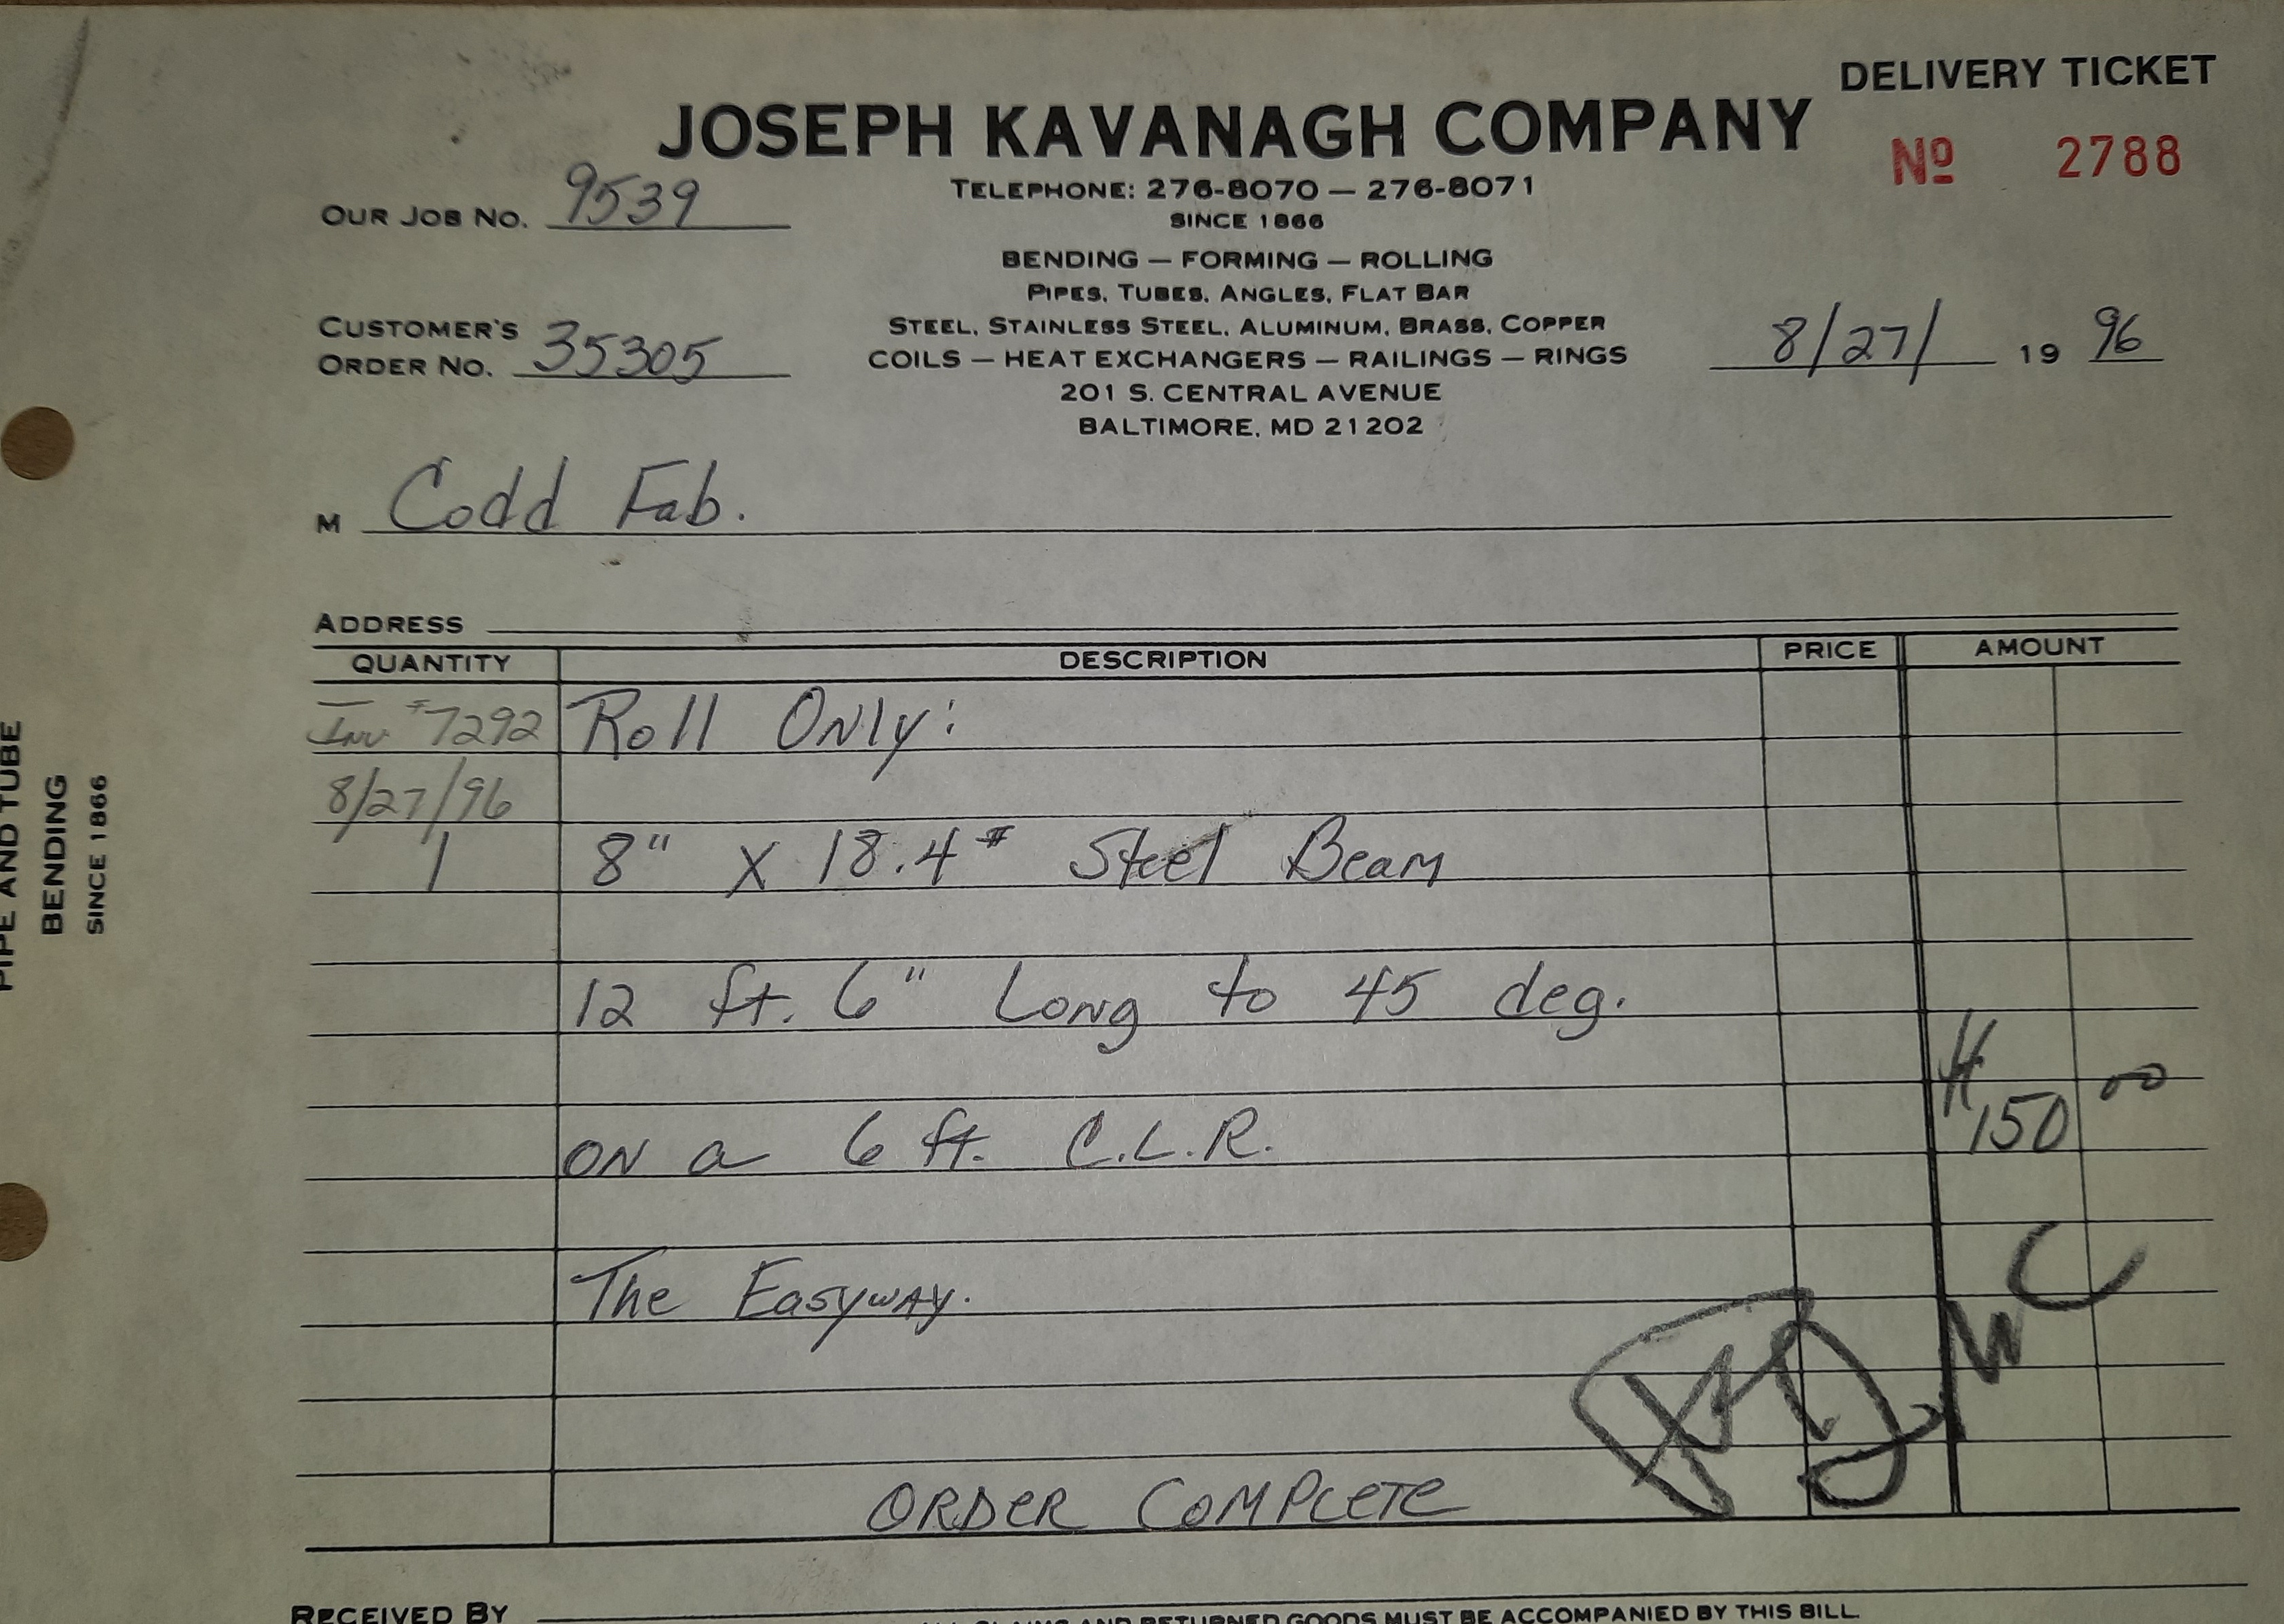 DELIVERY TICKET
JOSEPH KAVANAGH COMPANY
Nº 2788
TELEPHONE: 276-8070 — 276-8071
SINCE 1866
OUR JOB NO. 9539
BENDING — FORMING — ROLLING
PIPES, TUBES, ANGLES, FLAT BAR
STEEL, STAINLESS STEEL, ALUMINUM, BRASS, COPPER
CUSTOMER'S
ORDER NO. 35305
COILS — HEAT EXCHANGERS — RAILINGS — RINGS
8/27/ 19 96
201 S. CENTRAL AVENUE
BALTIMORE, MD 21202
M Codd Fab.
ADDRESS
QUANTITY DESCRIPTION PRICE AMOUNT
Inv #7292 Roll Only:
8/27/96
1 8" X 18.4# Steel Beam
12 ft. 6" Long to 45 deg.
150 00
on a 6 ft. C.L.R.
The Easyway.
ORDER COMPLETE
RECEIVED BY
AND RETURNED GOODS MUST BE ACCOMPANIED BY THIS BILL.
PIPE AND TUBE
BENDING
SINCE 1866